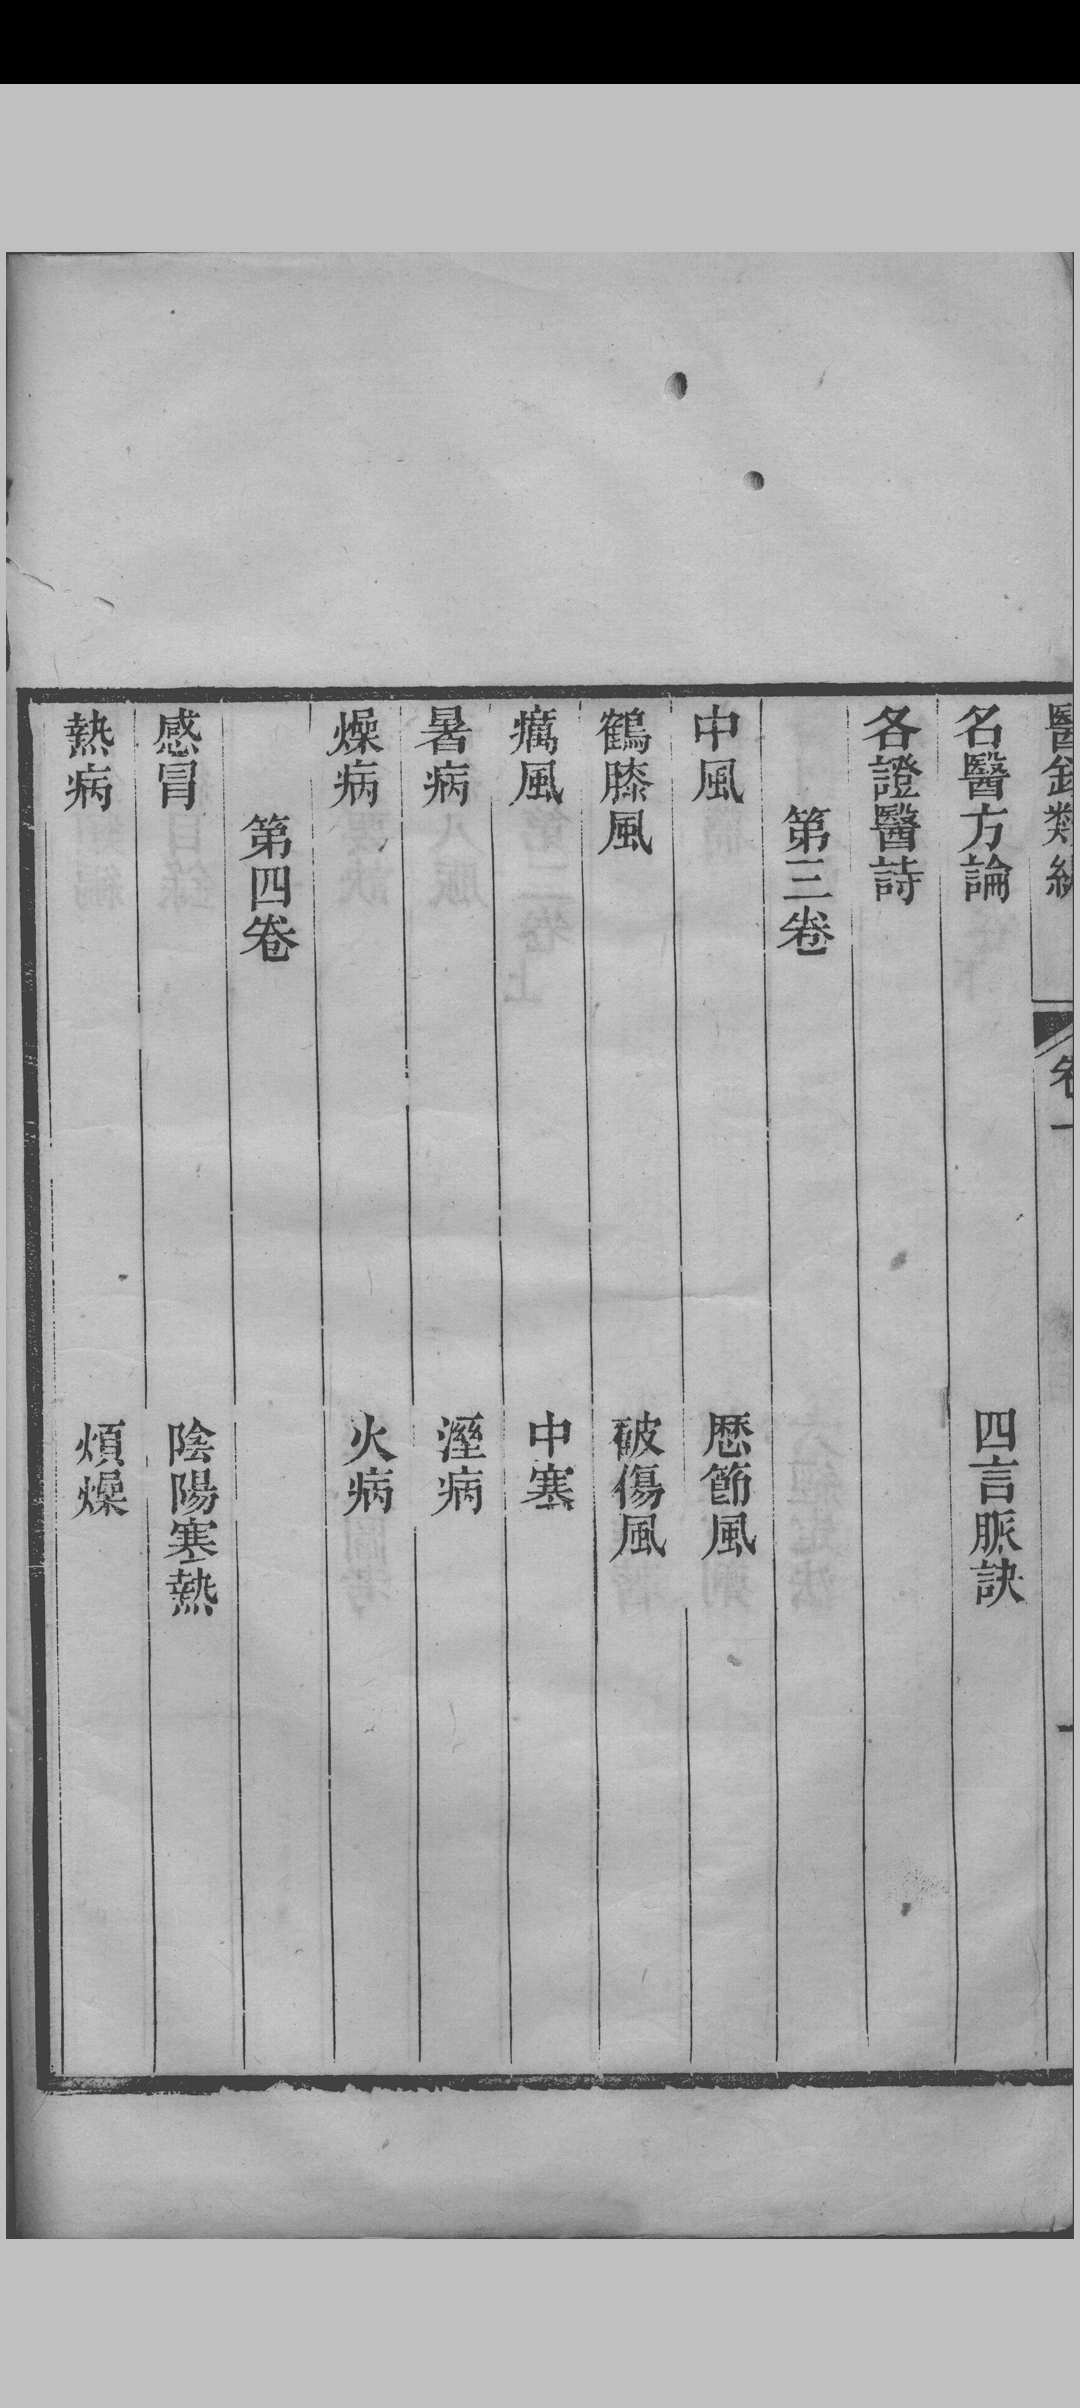 卷一
名醫方論　四言脈訣
各證醫詩
第三卷
中風　歴節風
鶴膝風　破傷風
癘風　中寒
暑病　溼病
燥病　火病
第四卷
感冒　陰陽寒熱
熱病　煩燥